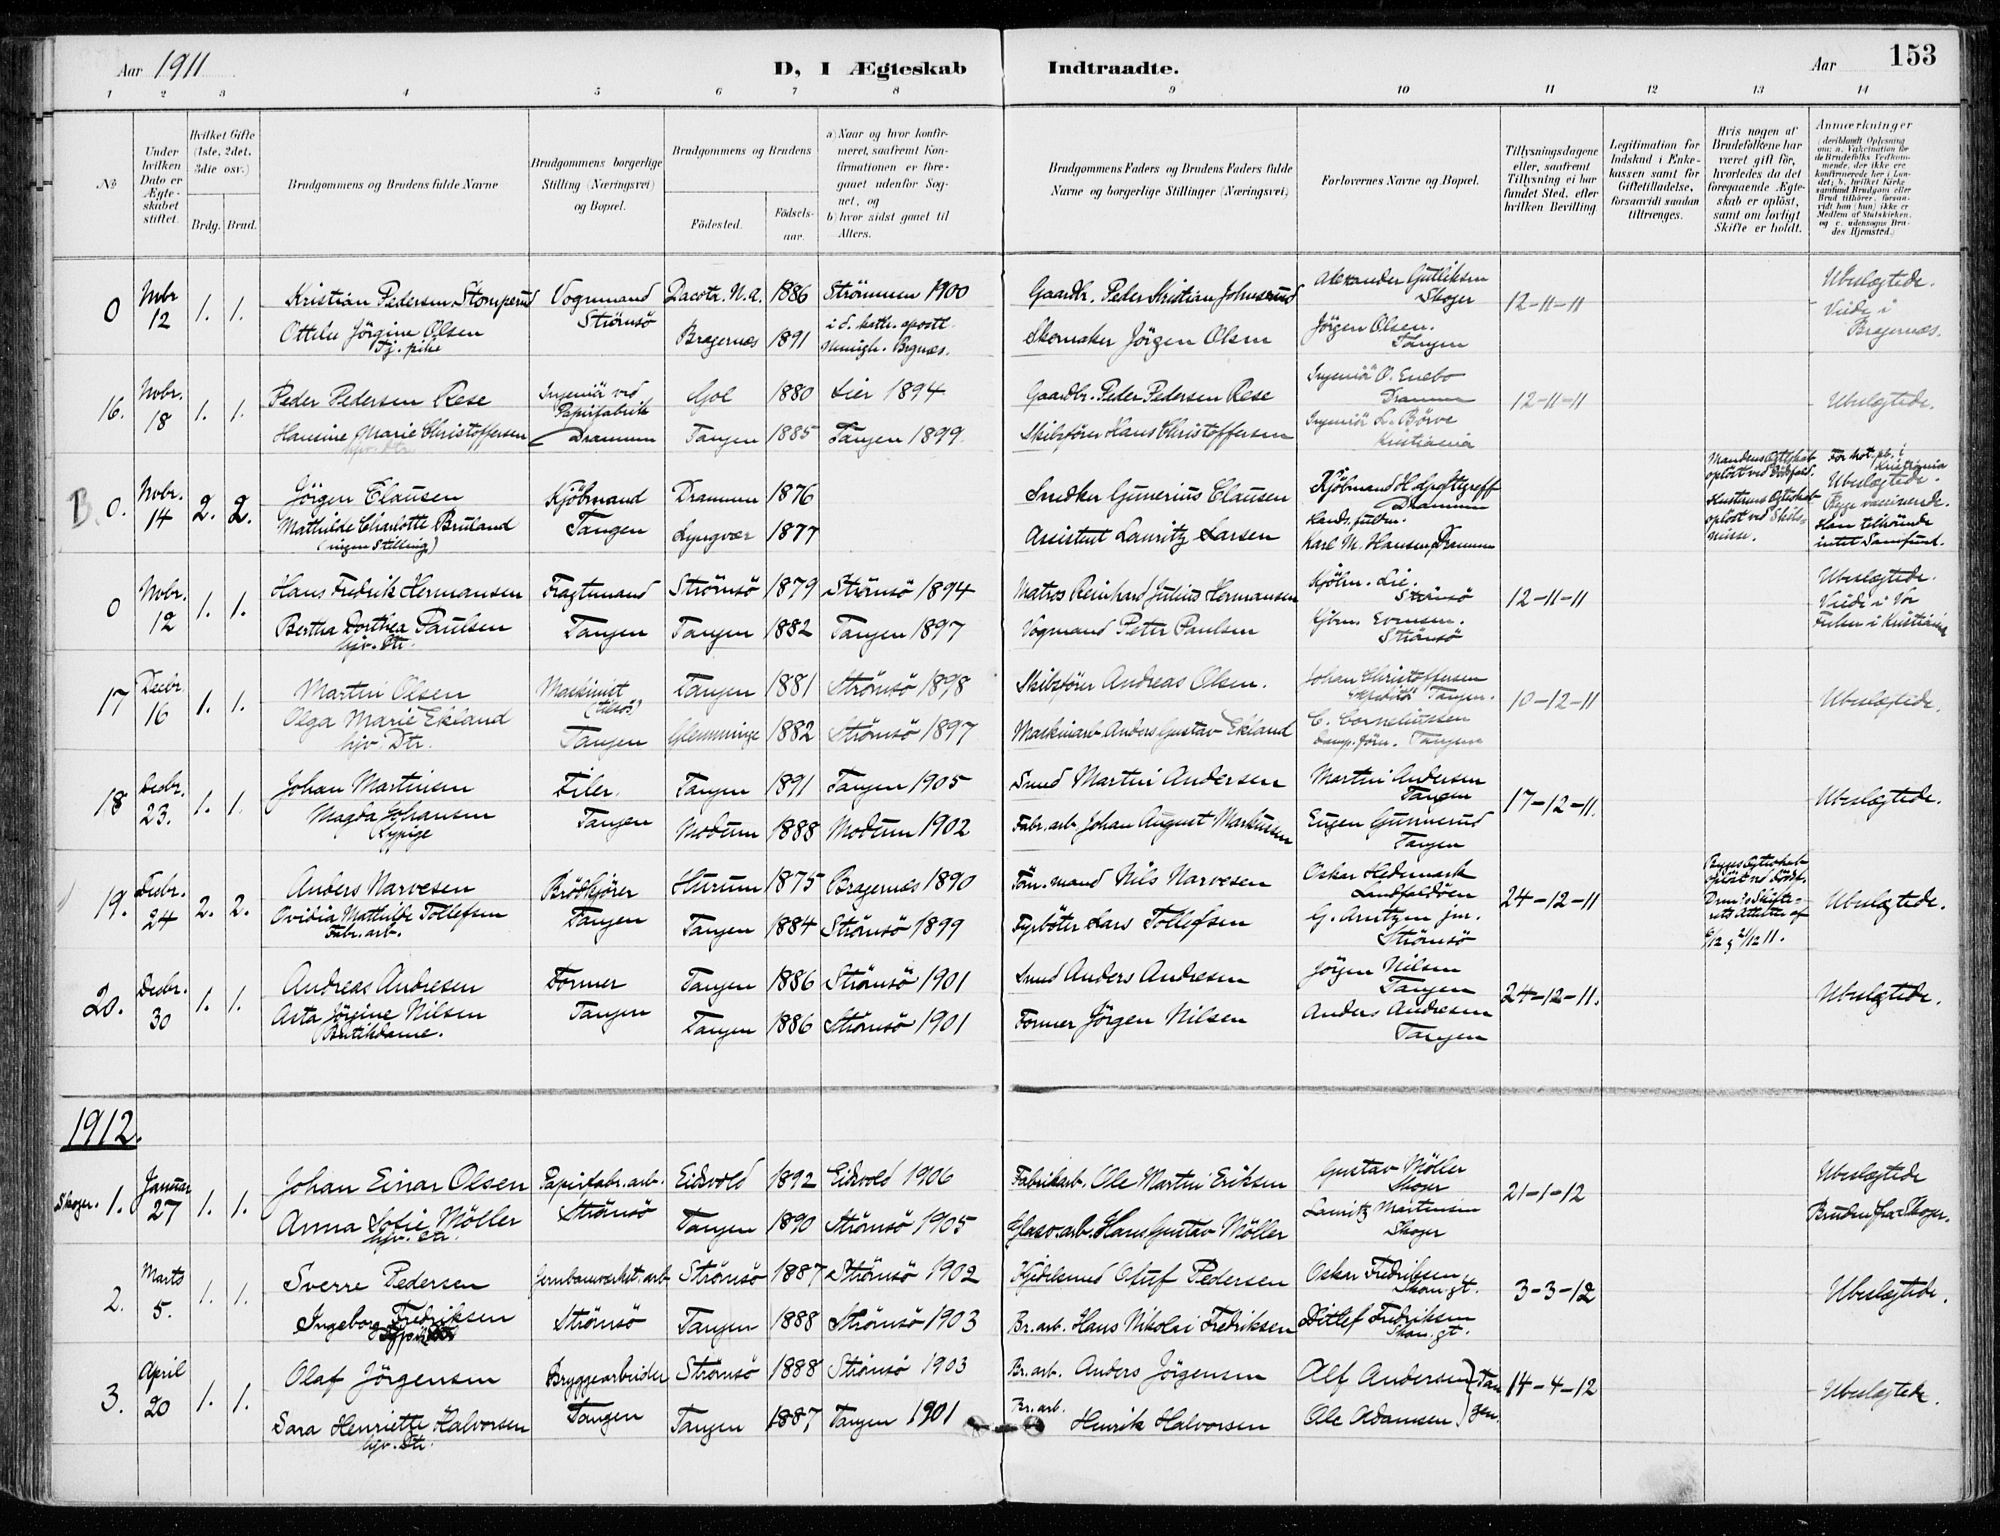 Aar 1911
D, I Ægteskab Indtraadte.
Aar
153
1 2 3 4 5 6 7 8 9 10 11 12 13 14
No
Under hvilken Dato er Ægteskabet stiftet.
Hvilket Gifte (1ste, 2det, 3die osv.)
Brdg. Brud.
Brudgommens og Brudens fulde Navne
Brudgommens borgerlige Stilling (Næringsvei) og Bopæl.
Brudgommens og Brudens
Födested.
Födselsaar.
a) Naar og hvor konfirmeret, saafremt Konfirmationen er foregaaet udenfor Sognet, og
b) hvor sidst gaaet til Alters.
Brudgommens Faders og Brudens Faders fulde Navne og borgerlige Stillinger (Næringsvei)
Forlovernes Navne og Bopæl.
Tillysningsdagene eller, saafremt Tillysning ei har fundet Sted, efter hvilken Bevilling
Legitimation for Indskud i Enkekassen samt for Giftetilladelse, forsaavidt saadan tiltrænges.
Hvis nogen af Brudefolkene har været gift för, hvorledes da det foregaaende Ægteskab er oplöst, samt om lovligt Skifte er holdt.
Anmærkninger
(deriblandt Oplysning om: a. Vakcination for de Brudefolks Vedkommende, der ikke ere konfirmerede her i Landet; b. hvilket Kirkesamfund Brudgom eller Brud tilhörer, forsaavidt han (hun) ikke er Medlem af Statskirken, og c. udensogns Brudes Hjemsted.)
0 Nvbr 12 1. 1. Kristian Pedersen Stomperud Vognmand Dacota. N.a. 1886 Strömmen 1900 Gaardbr. Peder Kristian Johnsrud Alexander Gulliksen Skoger 12-11-11 Ubeslægtede.
Ottilie Jörgine Olsen Tj. pike Strömsö Bragernæs 1891 i d. kath. apostl. Menigh. Brgnæs. Skomaker Jörgen Olsen Jörgen Olsen. Tangen Viede i Bragernæs.
16. Nvbr. 18 1. 1. Peder Pedersen Rese Ingeniör ved Papirfabrik Gol 1880 Lier 1894 Gaardbr. Peder Pedersen Rese Ingeniör O. Enebo Drammen 12-11-11 Ubeslægtede.
Hansine Marie Christoffersen hjv. Dtr. Drammen Tangen 1885 Tangen 1899. Skibsförer Hans Christoffersen Ingeniör L. Börve Kristiania
B. 0. Nvbr. 14 2. 2. Jörgen Clausen Kjöbmand Drammen 1876 Snedker Gunerius Clausen Kjöbmand Drammen
Mathilde Charlotte Bruland (ingen stilling) Tangen Lyngvær 1877 Assistent Lauritz Larsen Karl M. Hansen, Drammen
Mandens Ægteskab oplöst ved Dödsfald. Hustruens Ægteskab oplöst ved Skilsmisse.
For not. pb. i Kristiania Ubeslægtede. Begge vaccinerede. Han tilhörende intet Samfund.
0 Nvbr. 12 1. 1. Hans Fredrik Hermansen Fragtemand Strömsö 1879 Strömsö 1894 Matros Reinhard Julius Hermansen Kjöbm. Lie. Strömsö 12-11-11 Ubeslægtede.
Bertha Dorthea Paulsen hjv. Dtr. Tangen Tangen 1882 Tangen 1897 Vogmand Peter Paulsen Kjbm. Evensen. Strömsö Viede i Vor Frelser i Kristiania
17 Decbr. 16 1. 1. Martin Olsen Maskinist (tilsös) Tangen 1881 Strömsö 1898 Skibsförer Andreas Olsen. Johan Christoffersen Tangen. 10-12-11 Ubeslægtede.
Olga Marie Ekland hjv. Dtr. Tangen Glemminge 1882 Strömsö 1897 Maskinarb. Anders Gustav Ekland C. Corneliussen Tangen
18 Decbr. 23. 1. 1. Johan Martinsen Filer. Tangen 1891 Tangen 1905 Smed Martin Andersen Martin Andersen Tangen 17-12-11. Ubeslægtede.
Magda Johansen Sypige Tangen Modum 1888 Modum 1902 Fabr. arb. Johan August Markussen Eugen Gunnerud Tangen
19. Decbr. 24 2. 2. Anders Narvesen Brödkjörer Hurum 1875 Bragernæs 1890 Törn. mand Nils Narvesen Oskar Hedemark Landfaldöen 24-12-11 Ubeslægtede.
Ovidia Mathilde Tollefsen Fabr. arb. Tangen Tangen 1884 Strömsö 1899 Fyrböter Lars Tollefsen G. Arntzen jnr. Strömsö
Begges Ægteskab oplöst ved Dödsf. Drm.'s Skifterets Attester af 6/12 & 21/12 11.
20. Decbr. 30 1. 1. Andreas Andresen Former Tangen 1886 Strömsö 1901 Smed Anders Andresen Jörgen Nilsen Tangen 24-12-11. Ubeslægtede.
Asta Jörgine Nilsen Butikdame. Tangen Tangen 1886 Strömsö 1901 Former Jörgen Nilsen Anders Andresen Tangen
1912.
Skoger. 1. Januar 27 1. 1. Johan Einar Olsen Papirfabr. arb. Eidsvold 1892 Eidsvold 1906 Fabrikarb. Ole Martin Eriksen Gustav Möller Skoger 21-1-12 Ubeslægtede
Anna Sofie Möller hjv. Dtr. Strömsö Tangen 1890 Strömsö 1905 Glasv. arb. Hans Gustav Möller Lauritz Martinsen Skoger Bruden fra Skoger.
2. Marts 5. 1. 1. Sverre Pedersen Jernbaneverkst. arb. Strömsö 1887 Strömsö 1902 Kjedelsmed Oluf Pedersen Oskar Fredriksen Skom. gt. 3-3-12 Ubeslægtede.
Ingeborg Fredriksen Strömsö Tangen 1888 Strömsö 1903 Br. arb. Hans Nikolai Fredriksen Ditlef Fredriksen Skom. gt.
3. April 20 1. 1. Olaf Jörgensen Bryggearbeider Strömsö 1888 Strömsö 1903 Br. arb. Anders Jörgensen Alf Andersen Tangen. 14-4-12 Ubeslægtede.
Sara Henriette Halvorsen hjv. Dtr. Tangen Tangen 1887 Tangen 1901 Br. arb. Henrik Halvorsen Ole Adamsen